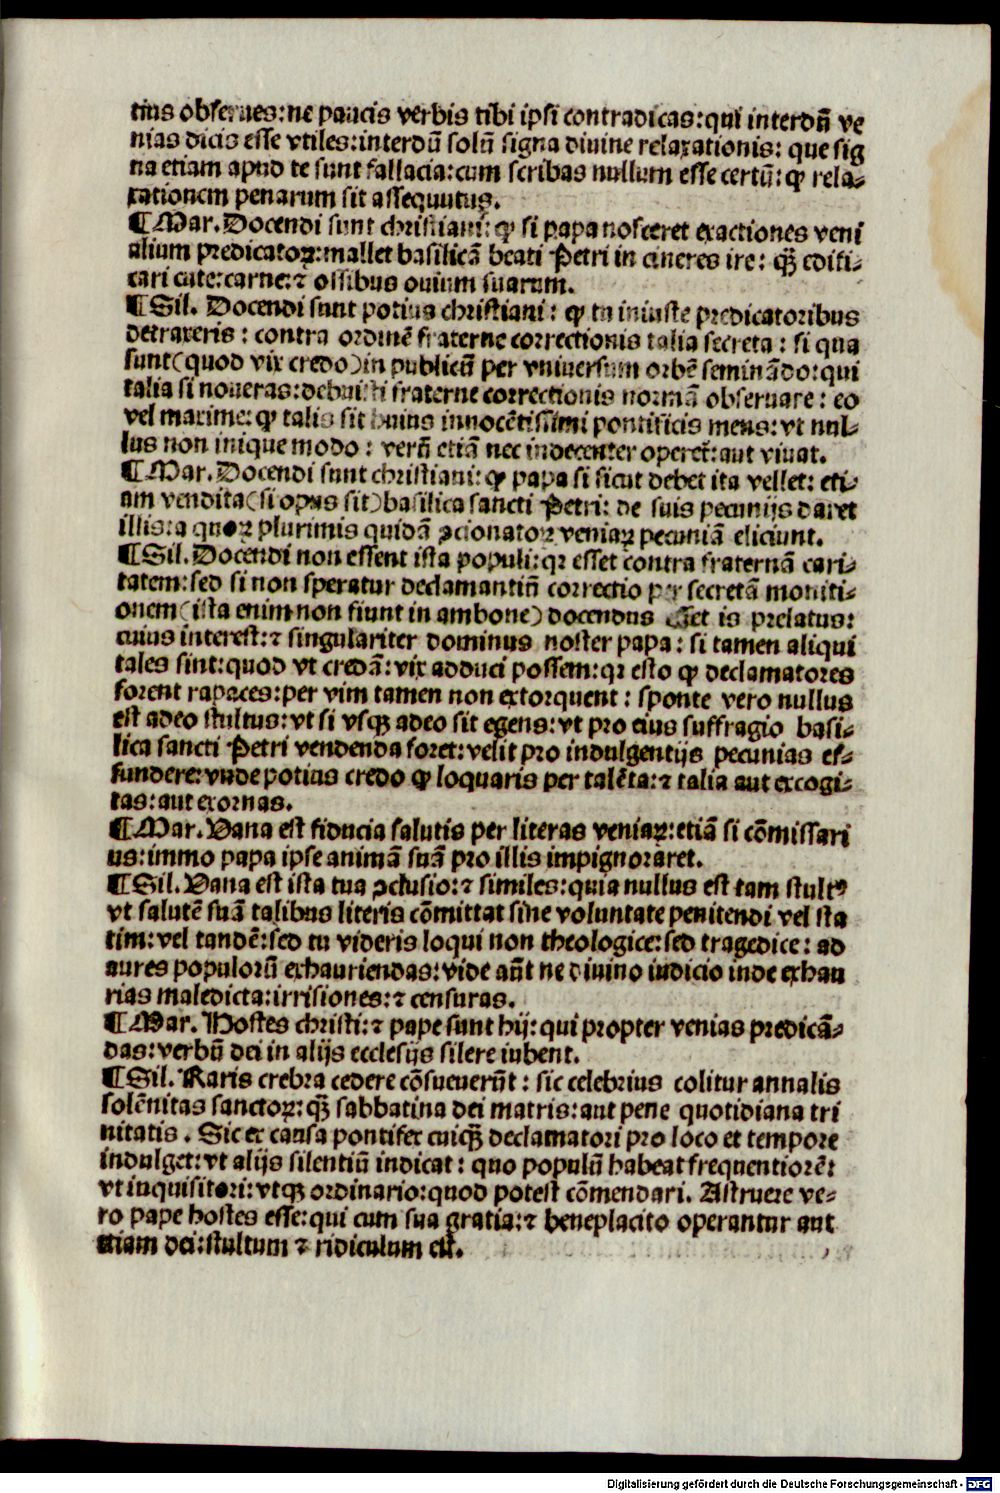 tius obserues: ne paucis verbis tibi ipsi contradicas: qui interdū ve
nias dicis esse vtiles: interdū solū signa diuine relaxationis: que sig
na etiam apud te sunt fallacia: cum scribas nullum esse certū: ꝙ rela⸗
xationem penarum sit assequutus.
¶ Mar. Docendi sunt christiani: ꝙ si papa nosceret exactiones veni
alium predicatoꝝ: mallet basilicā beati Petri in cineres ire: qꝫ̄ edifi⸗
cari cute: carne: ⁊ ossibus ouium suarum.
¶ Sil. Docendi sunt potius christiani: ꝙ tu iniuste predicatoribus
detraxeris: contra ordinē fraterne correctionis talia secreta: si qua
sunt (quod vix credo) in publicū per vniuersum orbē seminādo: qui
talia si noueras: debuisti fraterne correctionis normā obseruare: eo
vel maxime: ꝙ talis sit huius innocētissimi pontificis mens: vt nul⸗
lus non inique modo: verū etiā nec indecenter operet̄: aut viuat.
¶ Mar. Docendi sunt christiani: ꝙ papa si sicut debet ita vellet: eti⸗
am vendita (si opus sit) basilica sancti Petri: de suis pecunijs daret
illis: a quoꝝ plurimis quidā ꝯcionatoꝝ veniaꝝ pecuniā eliciunt.
¶ Sil. Docendi non essent ista populi: qꝛ esset contra fraternā cari⸗
tatem: sed si non speratur declamantiū correctio per secretā moniti⸗
onem (ista enim non fiunt in ambone) docendus esset is prelatus:
cuius interest: ⁊ singulariter dominus noster papa: si tamen aliqui
tales sint: quod vt credā: vix adduci possem: qꝛ esto ꝙ declamatores
forent rapaces: per vim tamen non extorquent: sponte vero nullus
est adeo stultus: vt si vsqꝫ adeo sit egens: vt pro eius suffragio basi⸗
lica sancti Petri vendenda foret: velit pro indulgentijs pecunias ef⸗
fundere: vnde potius credo ꝙ loquaris per talēta: ⁊ talia aut excogi⸗
tas: aut exornas.
¶ Mar. Vana est fiducia salutis per literas veniaꝝ: etiā si cōmissari
us: immo papa ipse animā suā pro illis impignoraret.
¶ Sil. Vana est ista tua ꝯclusio: ⁊ similes: quia nullus est tam stultꝰ
vt salutē suā talibus literis cōmittat sine voluntate penitendi vel sta
tim: vel tandē: sed tu videris loqui non theologice: sed tragedice: ad
aures populorū exhauriendas: vide aūt ne diuino iudicio inde exhau
rias maledicta: irrisiones: ⁊ censuras.
¶ Mar. Hostes christi: ⁊ pape sunt hij: qui propter venias predicā⸗
das: verbū dei in alijs ecclesijs silere iubent.
¶ Sil. Raris crebra cedere cōsueuerūt: sic celebrius colitur annalis
solēnitas sanctoꝝ: qꝫ̄ sabbatina dei matris: aut pene quotidiana tri
nitatis. Sic ex causa pontifex cuiqꝫ̄ declamatori pro loco et tempore
indulget: vt alijs silentiū indicat: quo populū habeat frequentiorē:
vt inquisitori: vtqꝫ ordinario: quod potest cōmendari. Astruere ve⸗
ro pape hostes esse: qui cum sua gratia: ⁊ beneplacito operantur aut
etiam dei: stultum ⁊ ridiculum est.
Digitalisierung gefördert durch die Deutsche Forschungsgemeinschaft - DFG